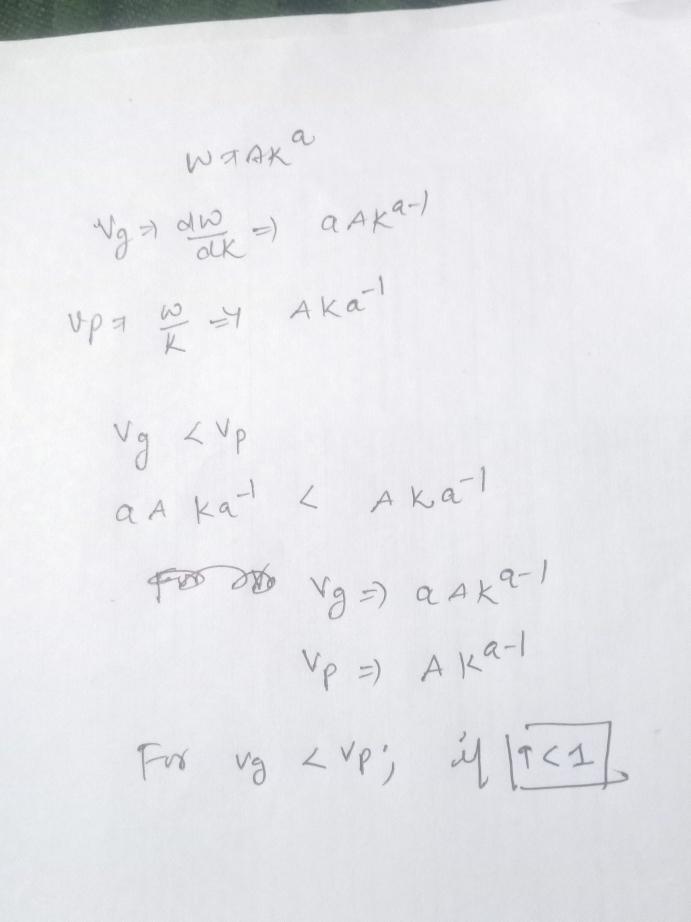 W ⇒ AK^a
Vg ⇒ dw/dk ⇒ a A K^a-1
Vp ⇒ w/k ⇒ A K a^-1
Vg < Vp
a A k a^-1 < A k a^-1
Vg ⇒ a A K^a-1
Vp ⇒ A K^a-1
For vg < vp; if 1 < 1